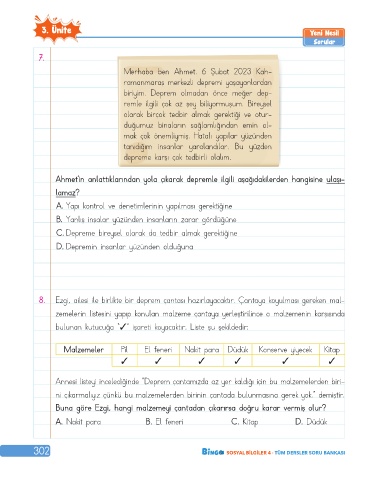 3. Ünite
Yeni Nesil
Sorular
7.
Merhaba ben Ahmet. 6 Şubat 2023 Kah-
ramanmaraş merkezli depremi yaşayanlardan
biriyim. Deprem olmadan önce meğer dep-
remle ilgili çok az şey biliyormuşum. Bireysel
olarak birçok tedbir almak gerektiği ve otur-
duğumuz binaların sağlamlığından emin ol-
mak çok önemliymiş. Hatalı yapılar yüzünden
tanıdığım insanlar yaralandılar. Bu yüzden
depreme karşı çok tedbirli olalım.
Ahmet'in anlattıklarından yola çıkarak depremle ilgili aşağıdakilerden hangisine ulaşı-
lamaz?
A. Yapı kontrol ve denetimlerinin yapılması gerektiğine
B. Yanlış inşalar yüzünden insanların zarar gördüğüne
C. Depreme bireysel olarak da tedbir almak gerektiğine
D. Depremin insanlar yüzünden olduğuna
8. Ezgi, ailesi ile birlikte bir deprem çantası hazırlayacaktır. Çantaya koyulması gereken mal-
zemelerin listesini yapıp konulan malzeme çantaya yerleştirilince o malzemenin karşısında
bulunan kutucuğa "✓" işareti koyacaktır. Liste şu şekildedir:
Malzemeler Pil El feneri Nakit para Düdük Konserve yiyecek Kitap
✓ ✓ ✓ ✓ ✓ ✓
Annesi listeyi incelediğinde "Deprem çantamızda az yer kaldığı için bu malzemelerden biri-
ni çıkarmalıyız çünkü bu malzemelerden birinin çantada bulunmasına gerek yok." demiştir.
Buna göre Ezgi, hangi malzemeyi çantadan çıkarırsa doğru karar vermiş olur?
A. Nakit para B. El feneri C. Kitap D. Düdük
302
BİNGO SOSYAL BİLGİLER 4 - TÜM DERSLER SORU BANKASI